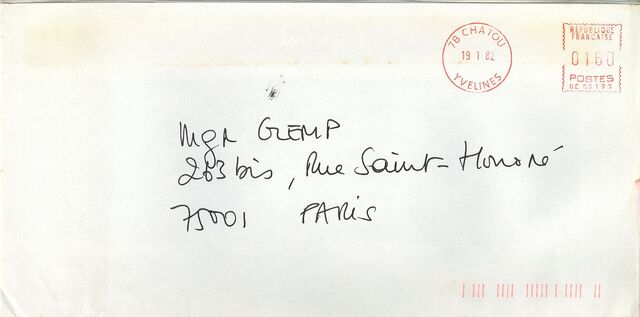 78 CHATOU
19 1 82
YVELINES
REPUBLIQUE
FRANCAISE
0160
POSTES
Mgr GLEMP
263 bis, Rue Saint-Honoré
75001 PARIS